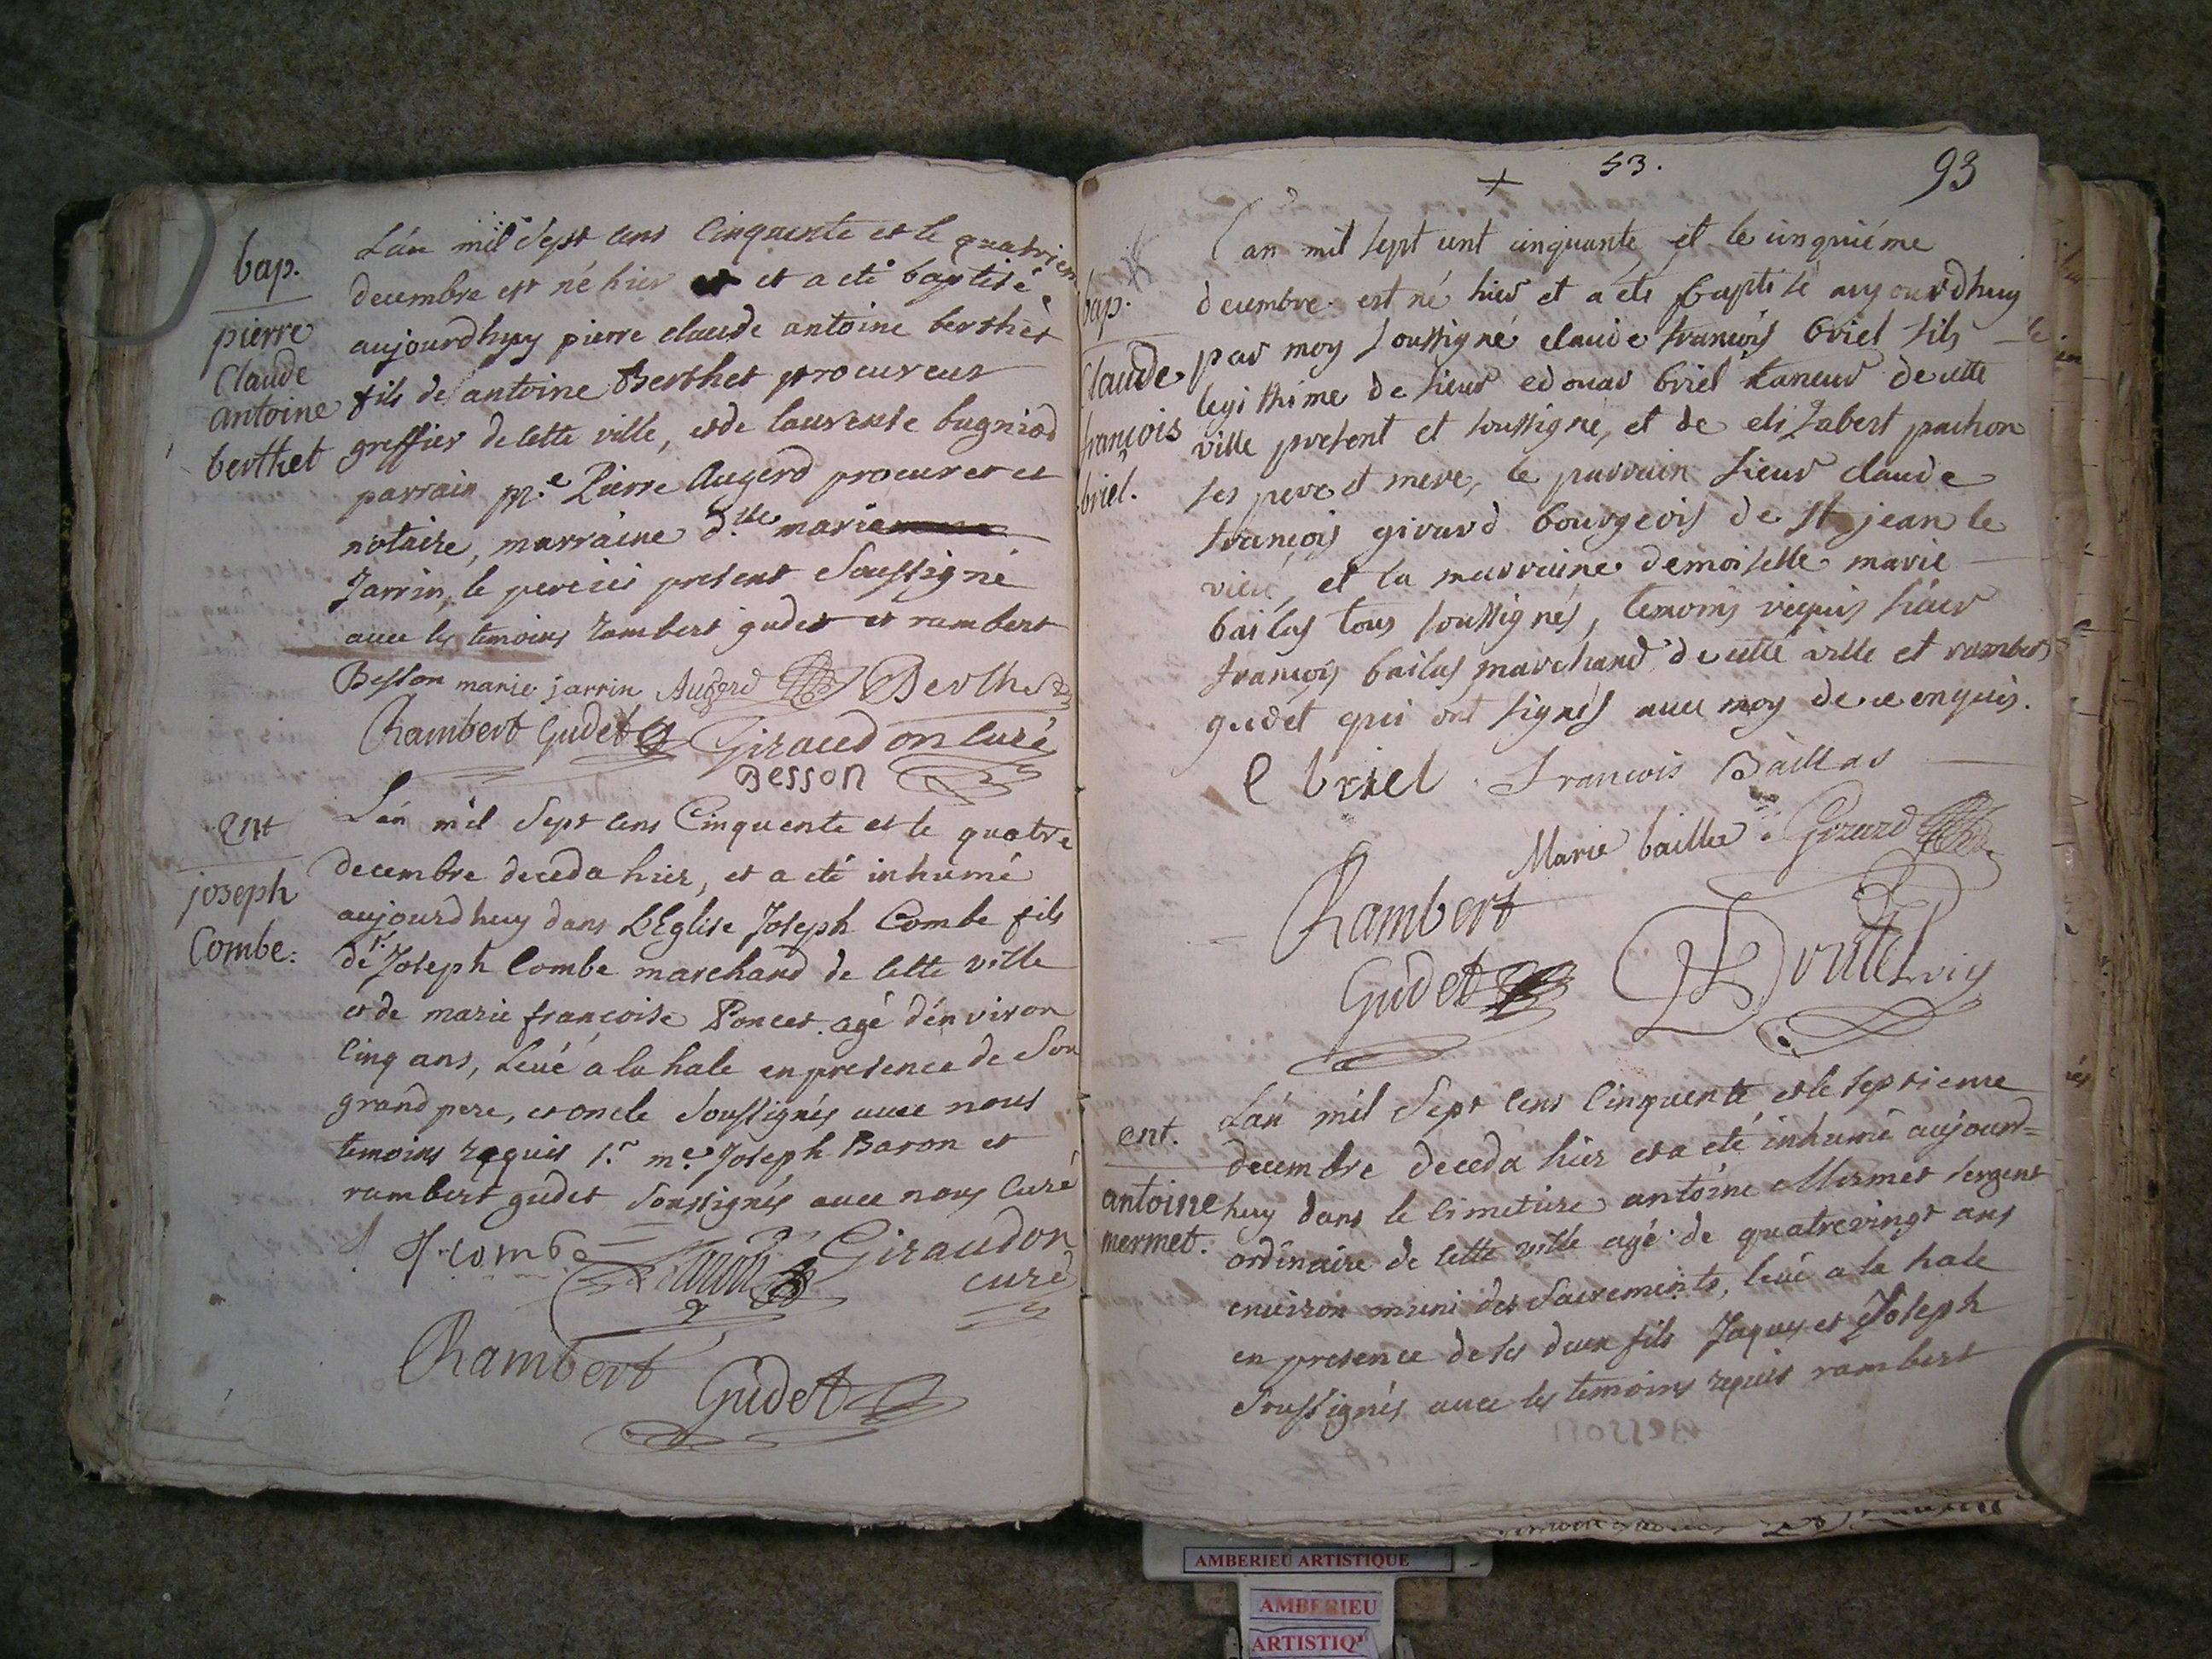 bap.
pierre
Claude
antoine
berthet
L'an mil Sept cens Cinquente et le quatrien
decembre est né hier et a eté baptisé
aujourdhuy pierre claude antoine berthet
fils de antoine Berthet procureur
greffier de cette ville, et de laurense bugniod
parrain M.e Pierre Augerd procureur et
notaire, marraine d.lle marie
Jarrin, le pere ici present Soussigné
avec les temoins rambert gudet et rambert
Besson marie jarrin Augerd Berthet
Rambert Gudet Giraudon curé
Besson
ent
joseph
Combe:
L'an mil Sept cens Cinquente et le quatre
decembre deceda hier, et a eté inhumé
aujourdhuy dans L'Eglise Joseph Combe fils
de Sr. Joseph Combe marchand de cette ville
et de marie françoise Poncet agé d'environ
Cinq ans, Levé a la hale en presence de Son
grand pere, et oncle Soussignés avec nous
temoins requis Sr. me. Joseph Baron et
rambert gudet Soussignés avec nous Curé
J combe Baron Giraudon
curé
Rambert
Gudet
53.
93
bap.
Claude
françois
briel.
L'an mil sept cent cinquante et le cinquiéme
decembre est né hier et a eté baptisé aujourdhuy
par moy soussigné claude françois briel fils
legithime de sieur edouar briel taneur de cette
ville present et soussigné, et de elizabert pachon
ses pere et mere, le parrain sieur claude
françois girard bourgeois de st jean le
vieu, et la marraine demoiselle marie
bailas tous soussignés, temoins requis sieur
françois bailas marchand de cette ville et rambert
gudet qui ont signés avec moy de ce enquis.
e briel François Baillas
Marie baillae Girard
Rambert
Gudet
ent.
antoine
mermet.
L'an mil Sept cens Cinquente et le septieme
decembre deceda hier et a eté inhumé aujourd=
huy dans le Cimetiere antoine Mermet sergent
ordinaire de cette ville agé de quatrevingt ans
environ muni des Sacrements, levé a la hale
en presence de ses deux fils Jaques et Joseph
Soussignés avec les temoins requis rambert
AMBERIEU ARTISTIQUE
AMBERIEU
ARTISTIQ